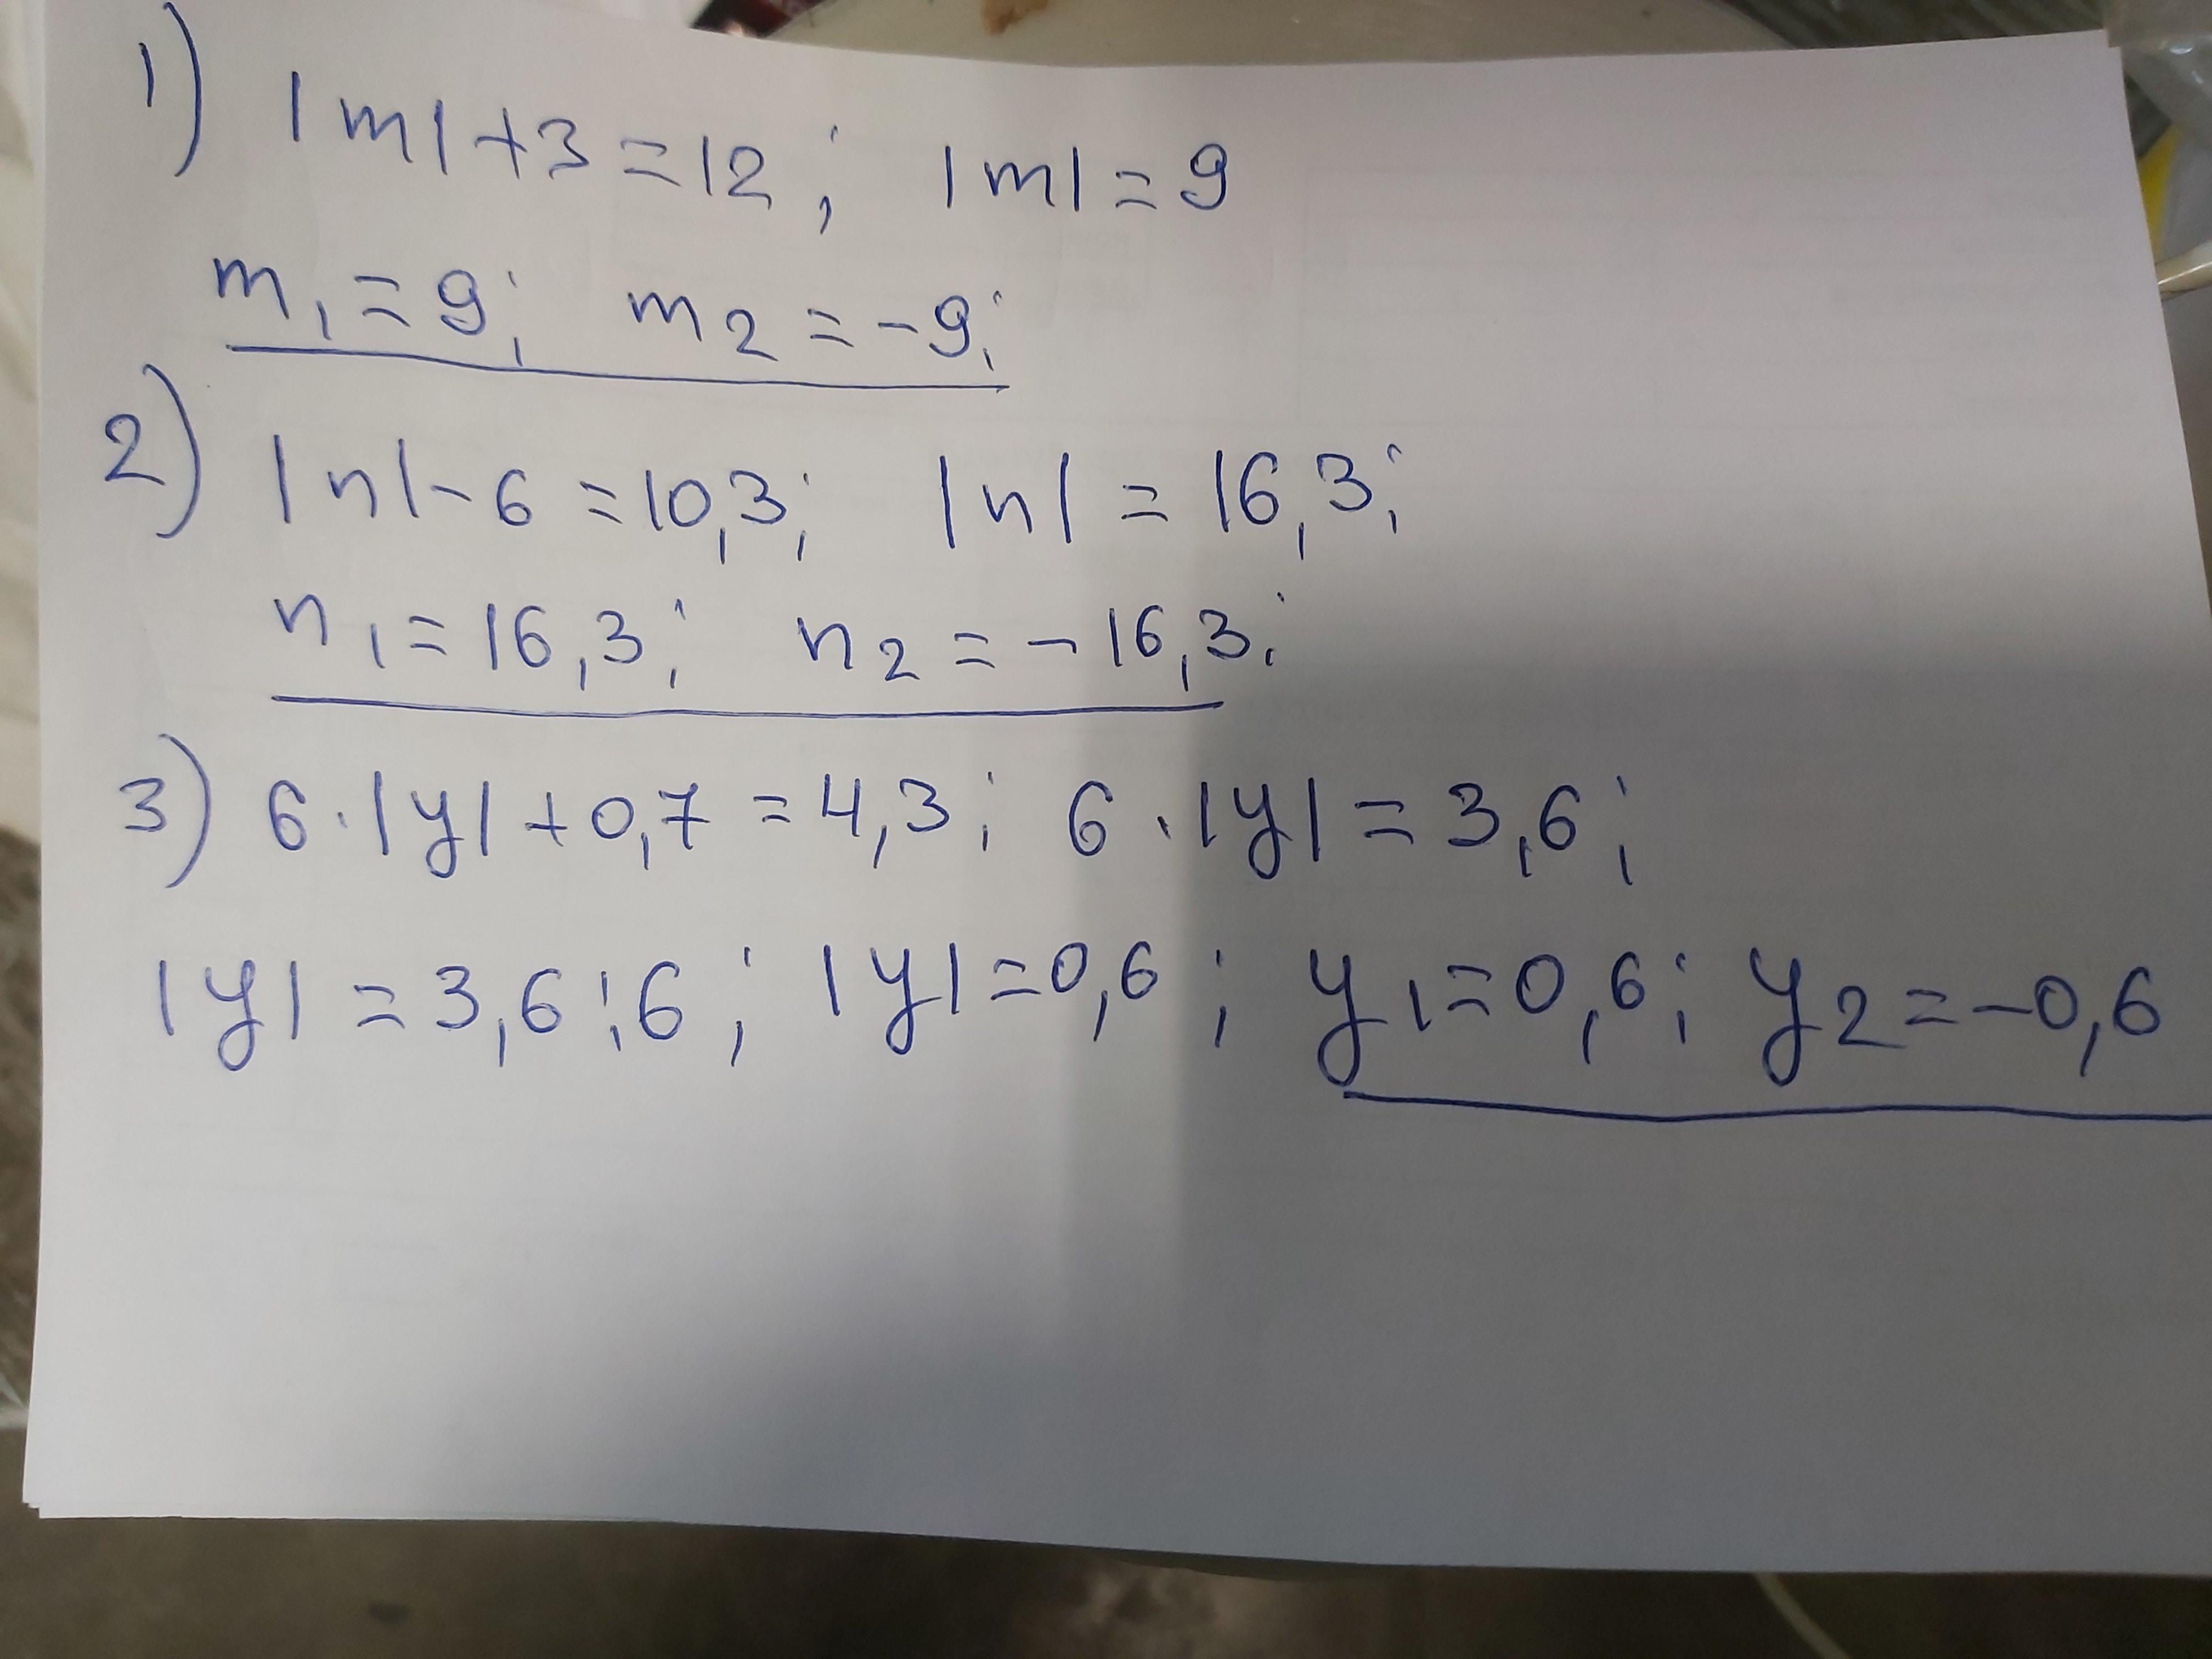 1) |m|+3=12; |m|=9
m₁=9; m₂=-9;
2) |n|-6=10,3; |n|=16,3;
n₁=16,3; n₂=-16,3;
3) 6·|y|+0,7=4,3; 6·|y|=3,6;
|y|=3,6:6; |y|=0,6; y₁=0,6; y₂=-0,6